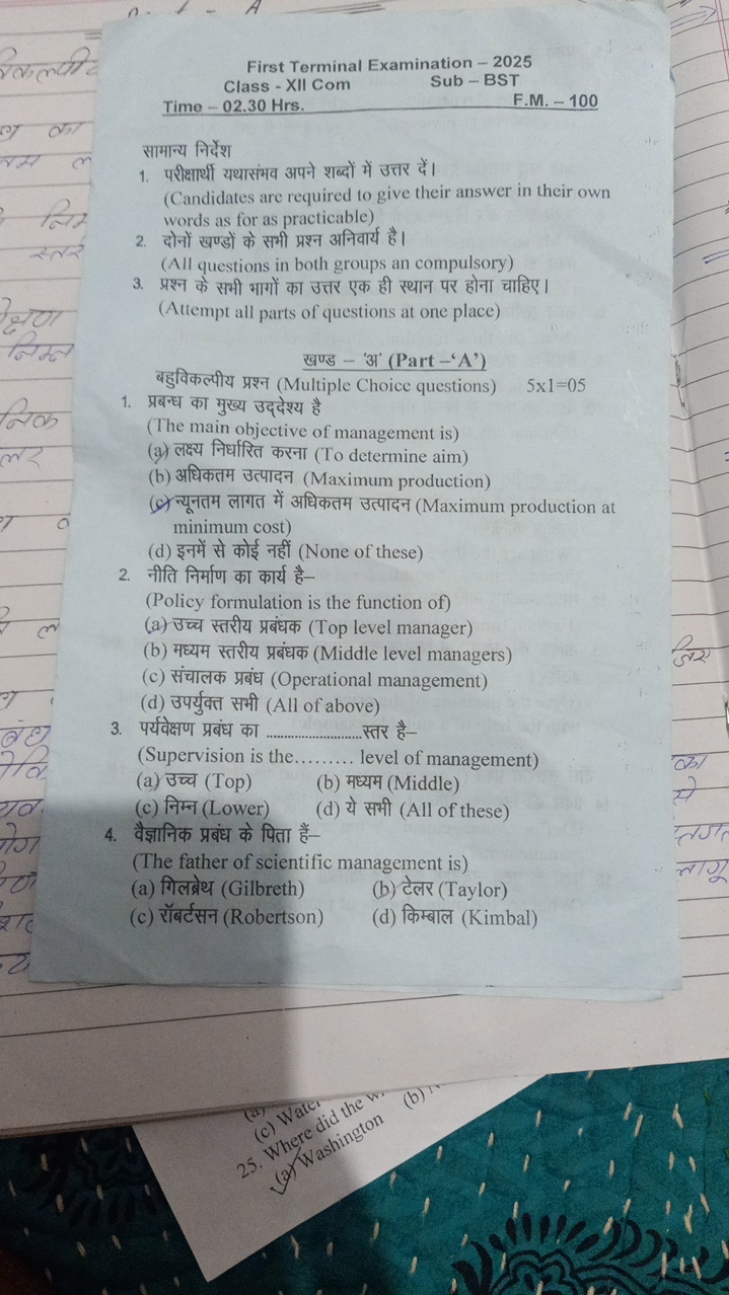 First Terminal Examination – 2025
Class - XII Com Sub – BST
Time – 02.30 Hrs. F.M. – 100
सामान्य निर्देश
1. परीक्षार्थी यथासंभव अपने शब्दों में उत्तर दें।
(Candidates are required to give their answer in their own
words as for as practicable)
2. दोनों खण्डों के सभी प्रश्न अनिवार्य है।
(All questions in both groups an compulsory)
3. प्रश्न के सभी भागों का उत्तर एक ही स्थान पर होना चाहिए।
(Attempt all parts of questions at one place)
खण्ड – 'अ' (Part –‘A’)
बहुविकल्पीय प्रश्न (Multiple Choice questions) 5x1=05
1. प्रबन्ध का मुख्य उद्देश्य है
(The main objective of management is)
(a) लक्ष्य निर्धारित करना (To determine aim)
(b) अधिकतम उत्पादन (Maximum production)
(c) न्यूनतम लागत में अधिकतम उत्पादन (Maximum production at
minimum cost)
(d) इनमें से कोई नहीं (None of these)
2. नीति निर्माण का कार्य है–
(Policy formulation is the function of)
(a) उच्च स्तरीय प्रबंधक (Top level manager)
(b) मध्यम स्तरीय प्रबंधक (Middle level managers)
(c) संचालक प्रबंध (Operational management)
(d) उपर्युक्त सभी (All of above)
3. पर्यवेक्षण प्रबंध का ........................स्तर है–
(Supervision is the......... level of management)
(a) उच्च (Top) (b) मध्यम (Middle)
(c) निम्न (Lower) (d) ये सभी (All of these)
4. वैज्ञानिक प्रबंध के पिता हैं–
(The father of scientific management is)
(a) गिलब्रेथ (Gilbreth) (b) टेलर (Taylor)
(c) रॉबर्टसन (Robertson) (d) किम्बाल (Kimbal)
(a)
(c) Water
25. Where did the
(a) Washington (b)